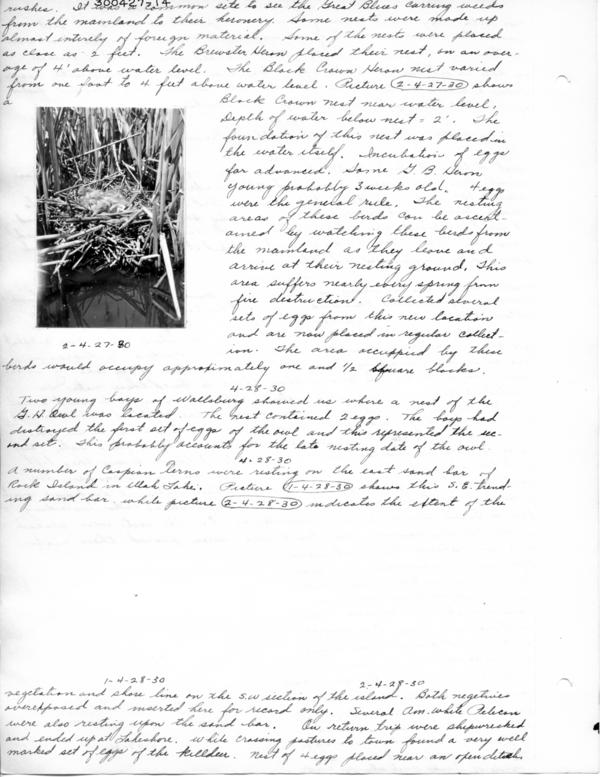 300427214
rushes. It was a common site to see the Great Blues carring weeds
from the mainland to their heronery. Some nests were made up
almost intirely of foreign material. Some of the nests were placed
as close as 2 feet. The Brewster Heron placed their nest, on an aver-
age of 4' above water level. The Black Crown Heron nest varied
from one foot to 4 feet above water level. Picture (2-4-27-30) shows
a
Black Crown nest near water level,
Depth of water below nest = 2'. The
foundation of this nest was placed in
the water itself. Incubation of eggs
far advanced. Some G. B. Heron
young probably 3 weeks old. 4 eggs
were the general rule. The nesting
areas of these birds can be ascert-
ained by watching these birds from
the mainland as they leave and
arrive at their nesting ground. This
area suffers nearly every spring from
fire destruction. Collected several
sets of eggs from this new location
and are now placed in regular collect-
ion. The area occuppied by these
2-4-27-30
birds would occupy approximately one and 1/2 square blocks.
4-28-30
Two young boys of Wallsburg showed us where a nest of the
G. H. Owl was located. The nest contained 2 eggs. The boys had
distroyed the first set of eggs of the owl and this represented the sec-
ond set. This probably accounts for the late nesting date of the owl.
4-28-30
A number of Caspian Terns were resting on the east sand bar of
Rock Island in Utah Lake. Picture (1-4-28-30) shows this S.E. trend-
ing sand bar while picture (2-4-28-30) indicates the extent of the
1-4-28-30
2-4-28-30
vegetation and shore line on the S.W section of the island. Both negetives
overexpposed and inserted here for record only. Several Am. White Pelican
were also resting upon the sand bar. On return trip were shipwrecked
and ended up at Lakeshore. While crossing pastures to town found a very well
marked set of eggs of the killdeer. Nest of 4 eggs placed near an open ditch.